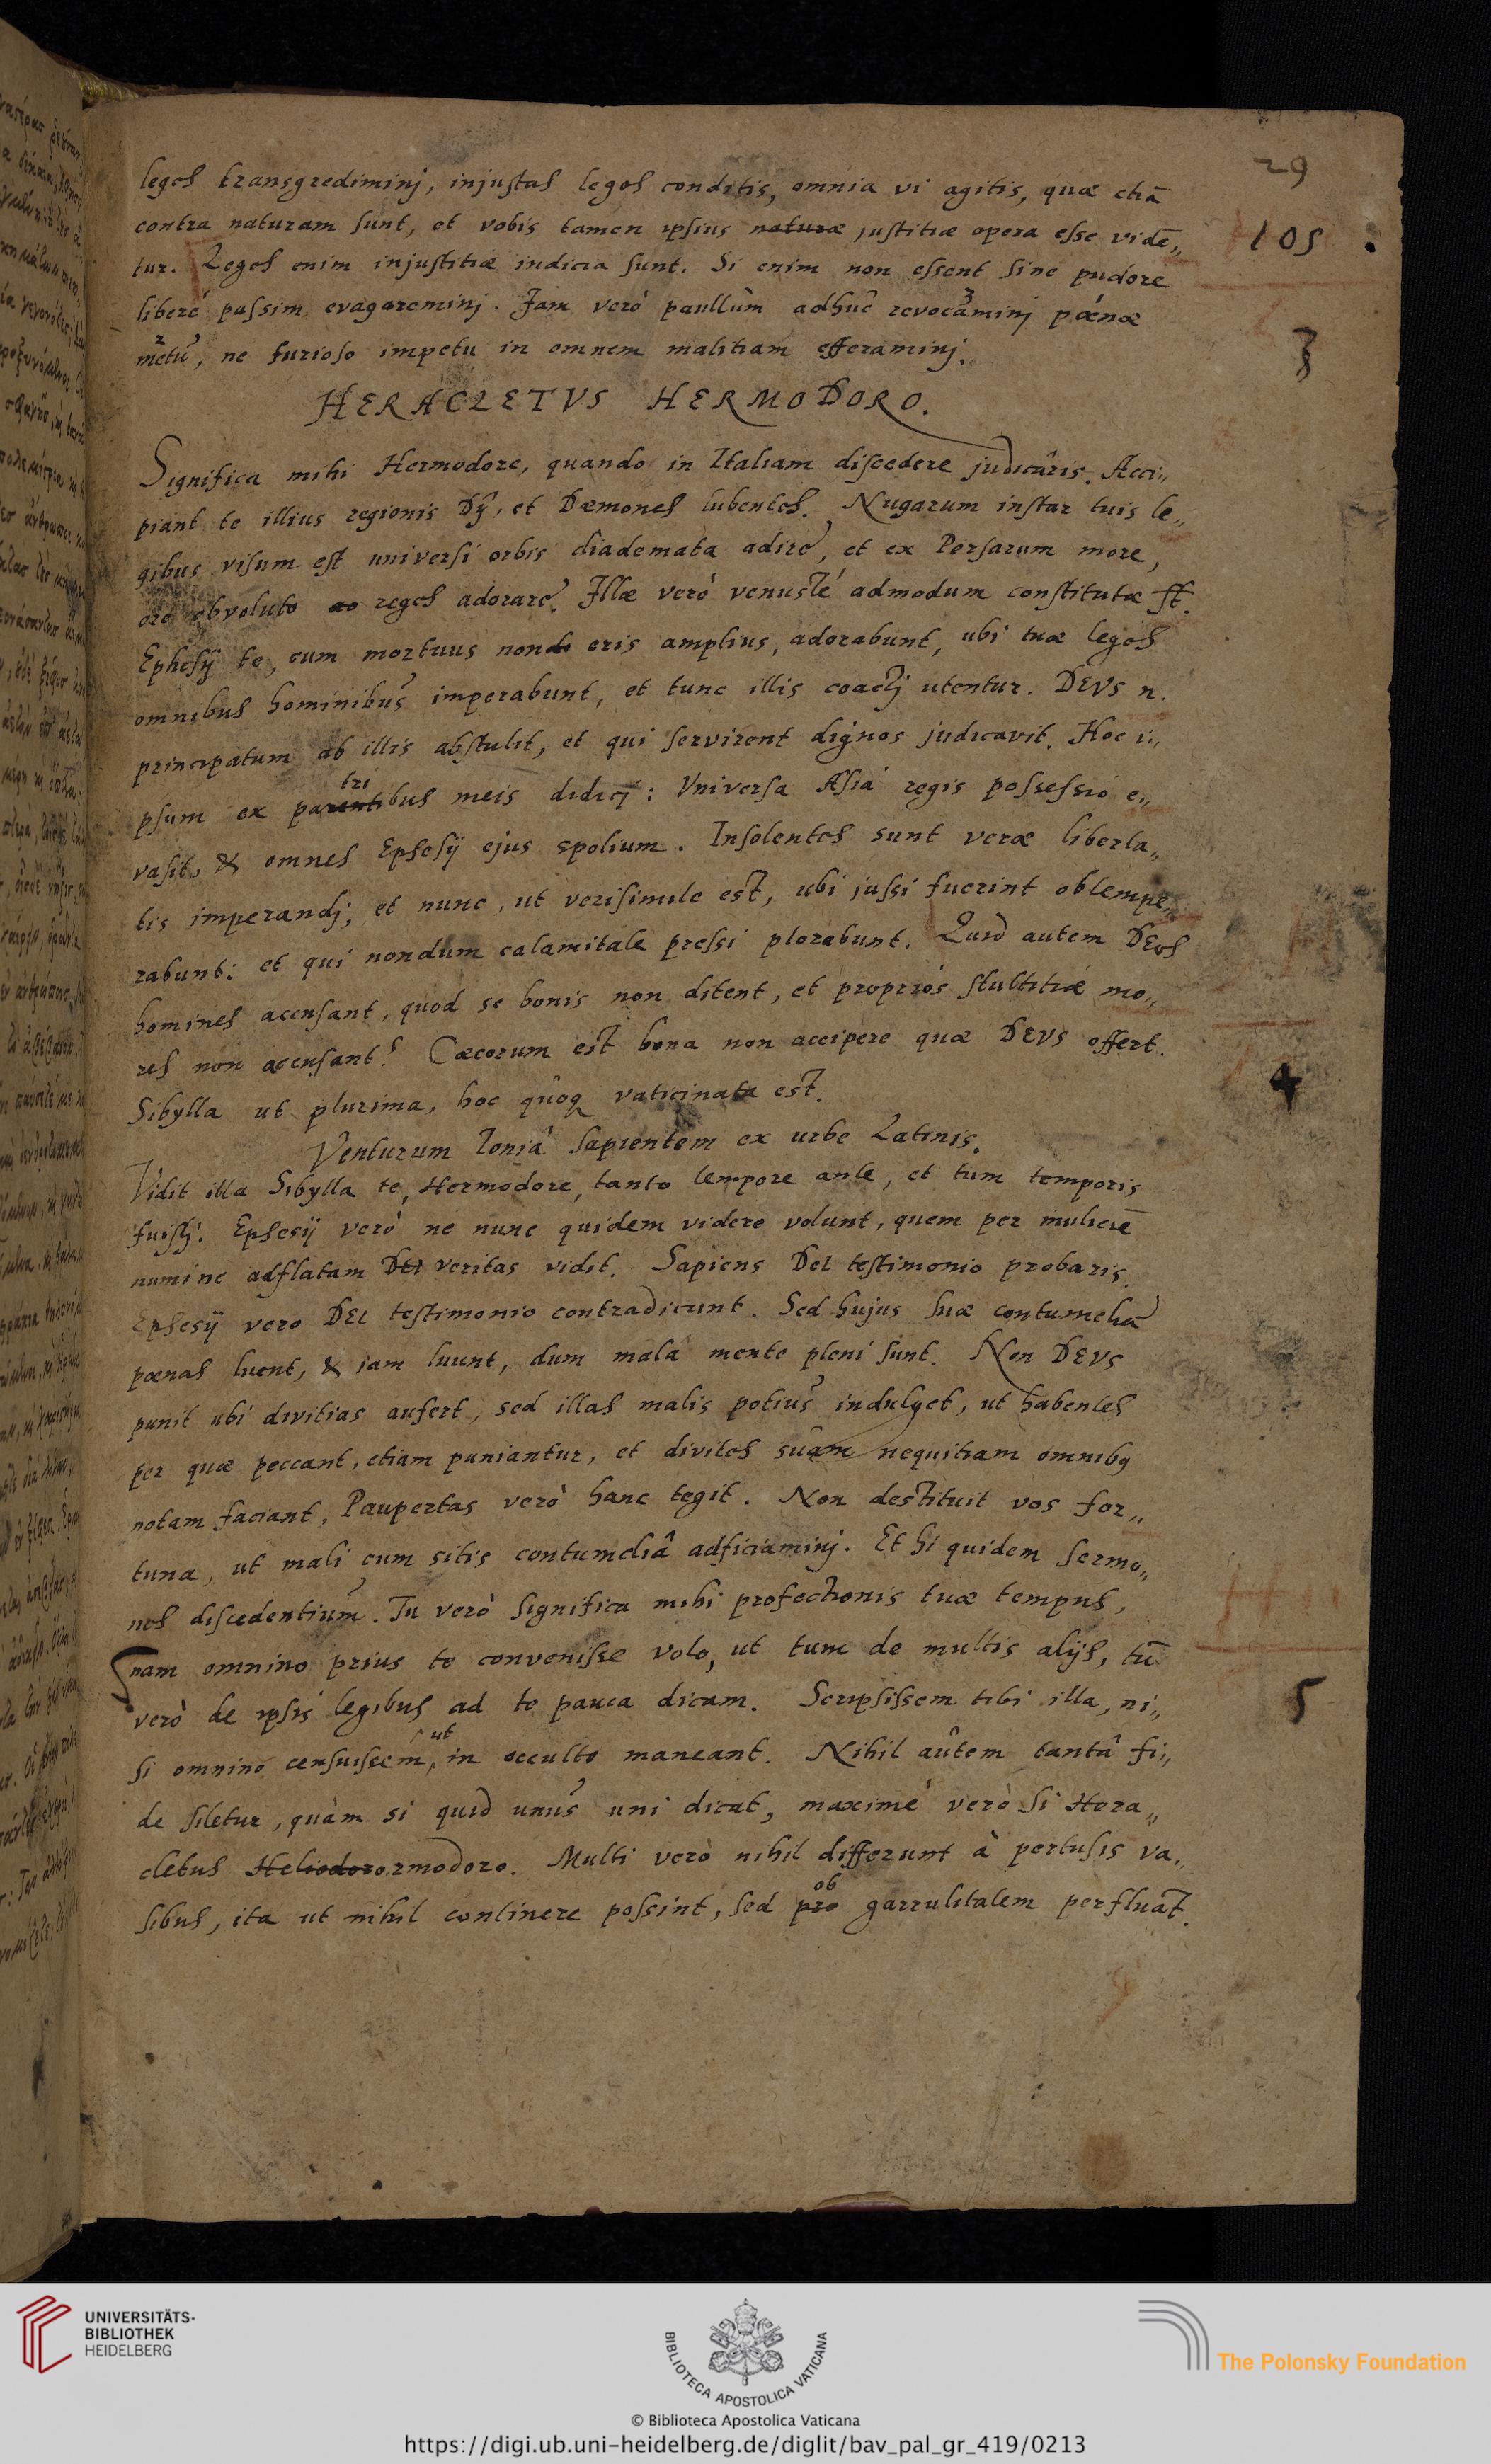 29
leges transgrediminj, injustas leges conditis, omnia vi agitis, quæ etiā
105
contra naturam sunt, et vobis tamen ipsius naturæ justitiæ opera esse videˉ„
tur. Leges enim injustitiæ indicia sunt. Si enim non essent sine pudore
liberè passim evagareminj. Jam verò paullùm adhuc revocaminj pœnæ
3
metu, ne furioso impetu in omnem malitiam efferaminj.
HERACLETVS HERMODORO.
Significa mihi Hermodore, quando in Italiam discedere judicâris. Acci„
piant te illius regionis Dÿ, et Dæmones lubentes. Nugarum instar tuis le„
gibus visum est universi orbis diademata adire, et ex Persarum more,
ore obvoluto ao reges adorare. Illæ verò venustè admodum constitutæ st.
Ephesÿ te, cum mortuus non do eris amplius, adorabunt, ubi tuæ leges
omnibus hominibus imperabunt, et tunc illis coactj utentur. DEVS n.
principatum ab illis abstulit, et qui servirent dignos judicavit. Hoc i„
tri
psum ex parentibus meis didicj: Vniversa Asia regis possessio e„
vasit, & omnes Ephesÿ ejus spolium. Insolentes sunt veræ liberta„
tis imperandj; et nunc, ut verisimile est, ubi jussi fuerint obtempe„
rabunt: et qui nondum calamitate pressi plorabunt. Quid autem DEos
homines accusant, quod se bonis non ditent, et proprios stultitiæ mo„
res non accusant? Cæcorum est bona non accipere quæ DEVS offert.
4
Sibylla ut plurima, hoc quoq vaticinata est.
Venturum Ioniâ sapientem ex urbe Latinis.
Vidit illa Sibylla te, Hermodore, tanto tempore ante, et tum temporis
fuistj. Ephesÿ verò ne nunc quidem videre volunt, quem per muliērē
numine adflatam DEI veritas vidit. Sapiens DEI testimonio probaris.
Ephesÿ vero DEI testimonio contradicunt. Sed hujus suæ contumeliæ
pœnas luent, & iam luunt, dum mala mente pleni sunt. Non DEVS
punit ubi divitias aufert, sed illas malis potius indulget, ut habentes
per quæ peccant, etiam puniantur, et divites suam nequitiam omnibq
notam faciant. Paupertas verò hanc tegit. Non destituit vos for„
tuna, ut mali cum sitis contumeliâ adficiaminj. Et hi quidem sermo„
nes discedentium. Tu verò significa mihi profectionis tuæ tempus,
nam omnino prius te convenisse volo, ut tum de multis alÿs, tū
5
verò de ipsis legibus ad te pauca dicam. Scripsissem tibi illa, ni„
ut
si omnino censuissem, in occulto maneant. Nihil autem tantâ fi„
de siletur, quàm si quid unus uni dicat, maximè verò si Hera„
cletus Heliodoro rmodoro. Multi verò nihil differunt à pertusis va„
ob
sibus, ita ut nihil continere possint, sed pro garrulitatem perfluāt.
UNIVERSITÄTS-
BIBLIOTHEK
HEIDELBERG
BIBLIOTECA APOSTOLICA VATICANA
The Polonsky Foundation
© Biblioteca Apostolica Vaticana
https://digi.ub.uni-heidelberg.de/diglit/bav_pal_gr_419/0213